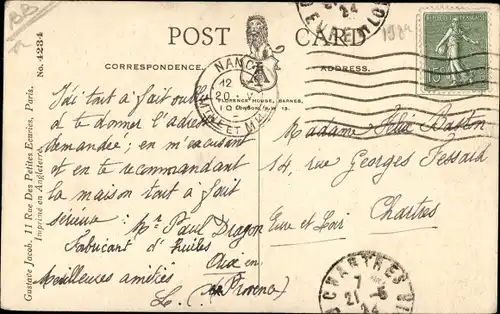 BB
POST CARD
CORRESPONDENCE.
ADDRESS.
No. 4234
Gustave Jacob, 11 Rue Des Petites Ecuries, Paris.
Imprimé en Angleterre.
FLORENCE HOUSE, BARNES,
LONDON, S.W. 13.
NANCY
12
20 - V
MEURTHE ET MLLE
24
1924
15
J'ai tout à fait oublié
de te donner l'adresse
demandée ; en m'excusant
et en te recommandant
la maison tout à fait
sérieuse : Mr Paul Dragon
Fabricant d'huiles
Aix en
Provence
Meilleures amitiés
L.
Madame Félix Bastin
14, rue Georges Fessard
Chartres
Eure et Loir
CHARTRES
7
21 - 5
24